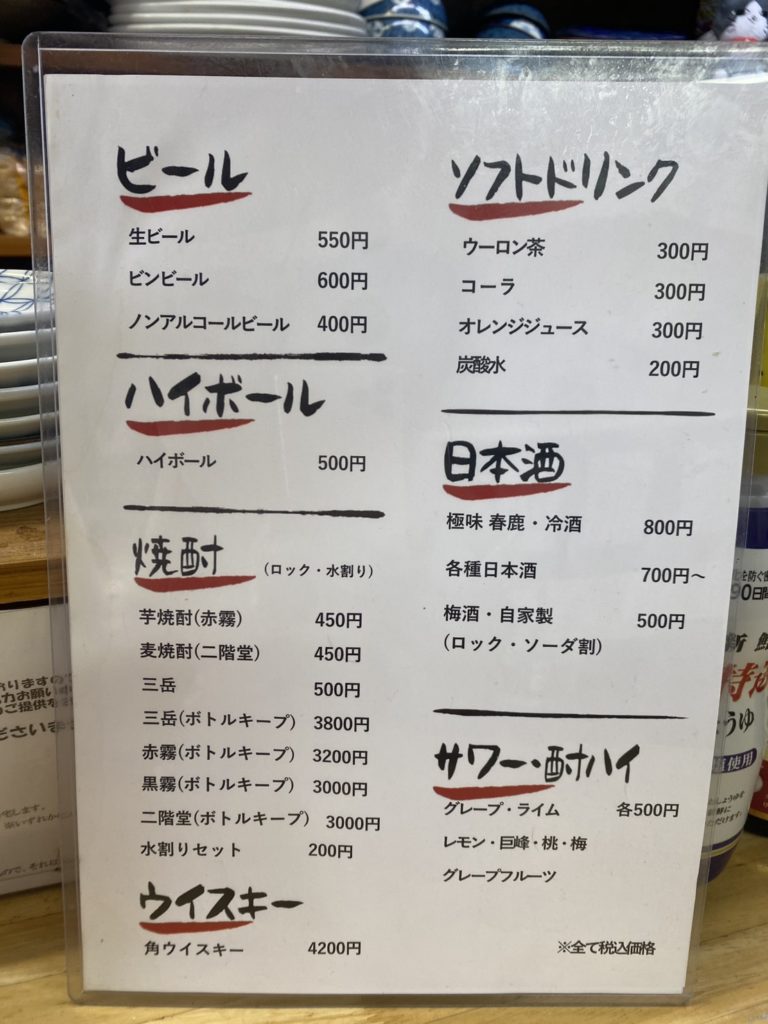 ビール
生ビール 550円
ビンビール 600円
ノンアルコールビール 400円
ハイボール
ハイボール 500円
焼酎 (ロック・水割り)
芋焼酎(赤霧) 450円
麦焼酎(二階堂) 450円
三岳 500円
三岳(ボトルキープ) 3800円
赤霧(ボトルキープ) 3200円
黒霧(ボトルキープ) 3000円
二階堂(ボトルキープ) 3000円
水割りセット 200円
ウイスキー
角ウイスキー 4200円
ソフトドリンク
ウーロン茶 300円
コーラ 300円
オレンジジュース 300円
炭酸水 200円
日本酒
極味 春鹿・冷酒 800円
各種日本酒 700円～
梅酒・自家製 500円
(ロック・ソーダ割)
サワー・酎ハイ
グレープ・ライム 各500円
レモン・巨峰・桃・梅
グレープフルーツ
※全て税込価格
を防ぐ
90日間
うゆ
使用